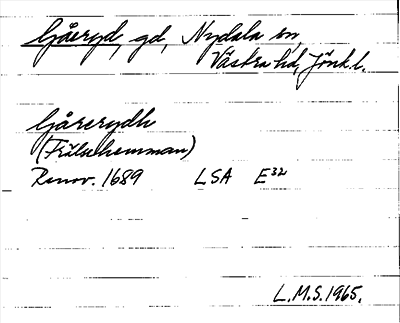 Gåeryd, gd, Nydala sn,
Västra hd, Jönk.l.
Gårerydh
(Frälsehemman)
Renov. 1689 LSA E32
L.M.S. 1965.